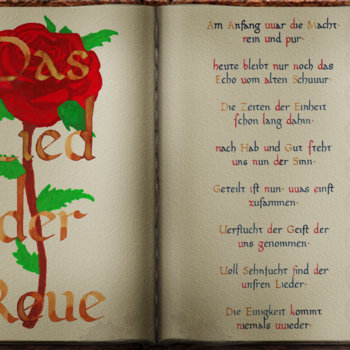 Das
Lied
der
Reue
Am Anfang war die Macht·
rein und pur·
heute bleibt nur noch das
Echo vom alten Schwur·
Die Zeiten der Einheit
schon lang dahin·
nach Hab und Gut steht
uns nun der Sinn·
Geteilt ist nun· was einst
zusammen·
Verflucht der Geist der
uns genommen·
Voll Sehnsucht sind der
unsren Lieder·
Die Einigkeit kommt
niemals wieder·